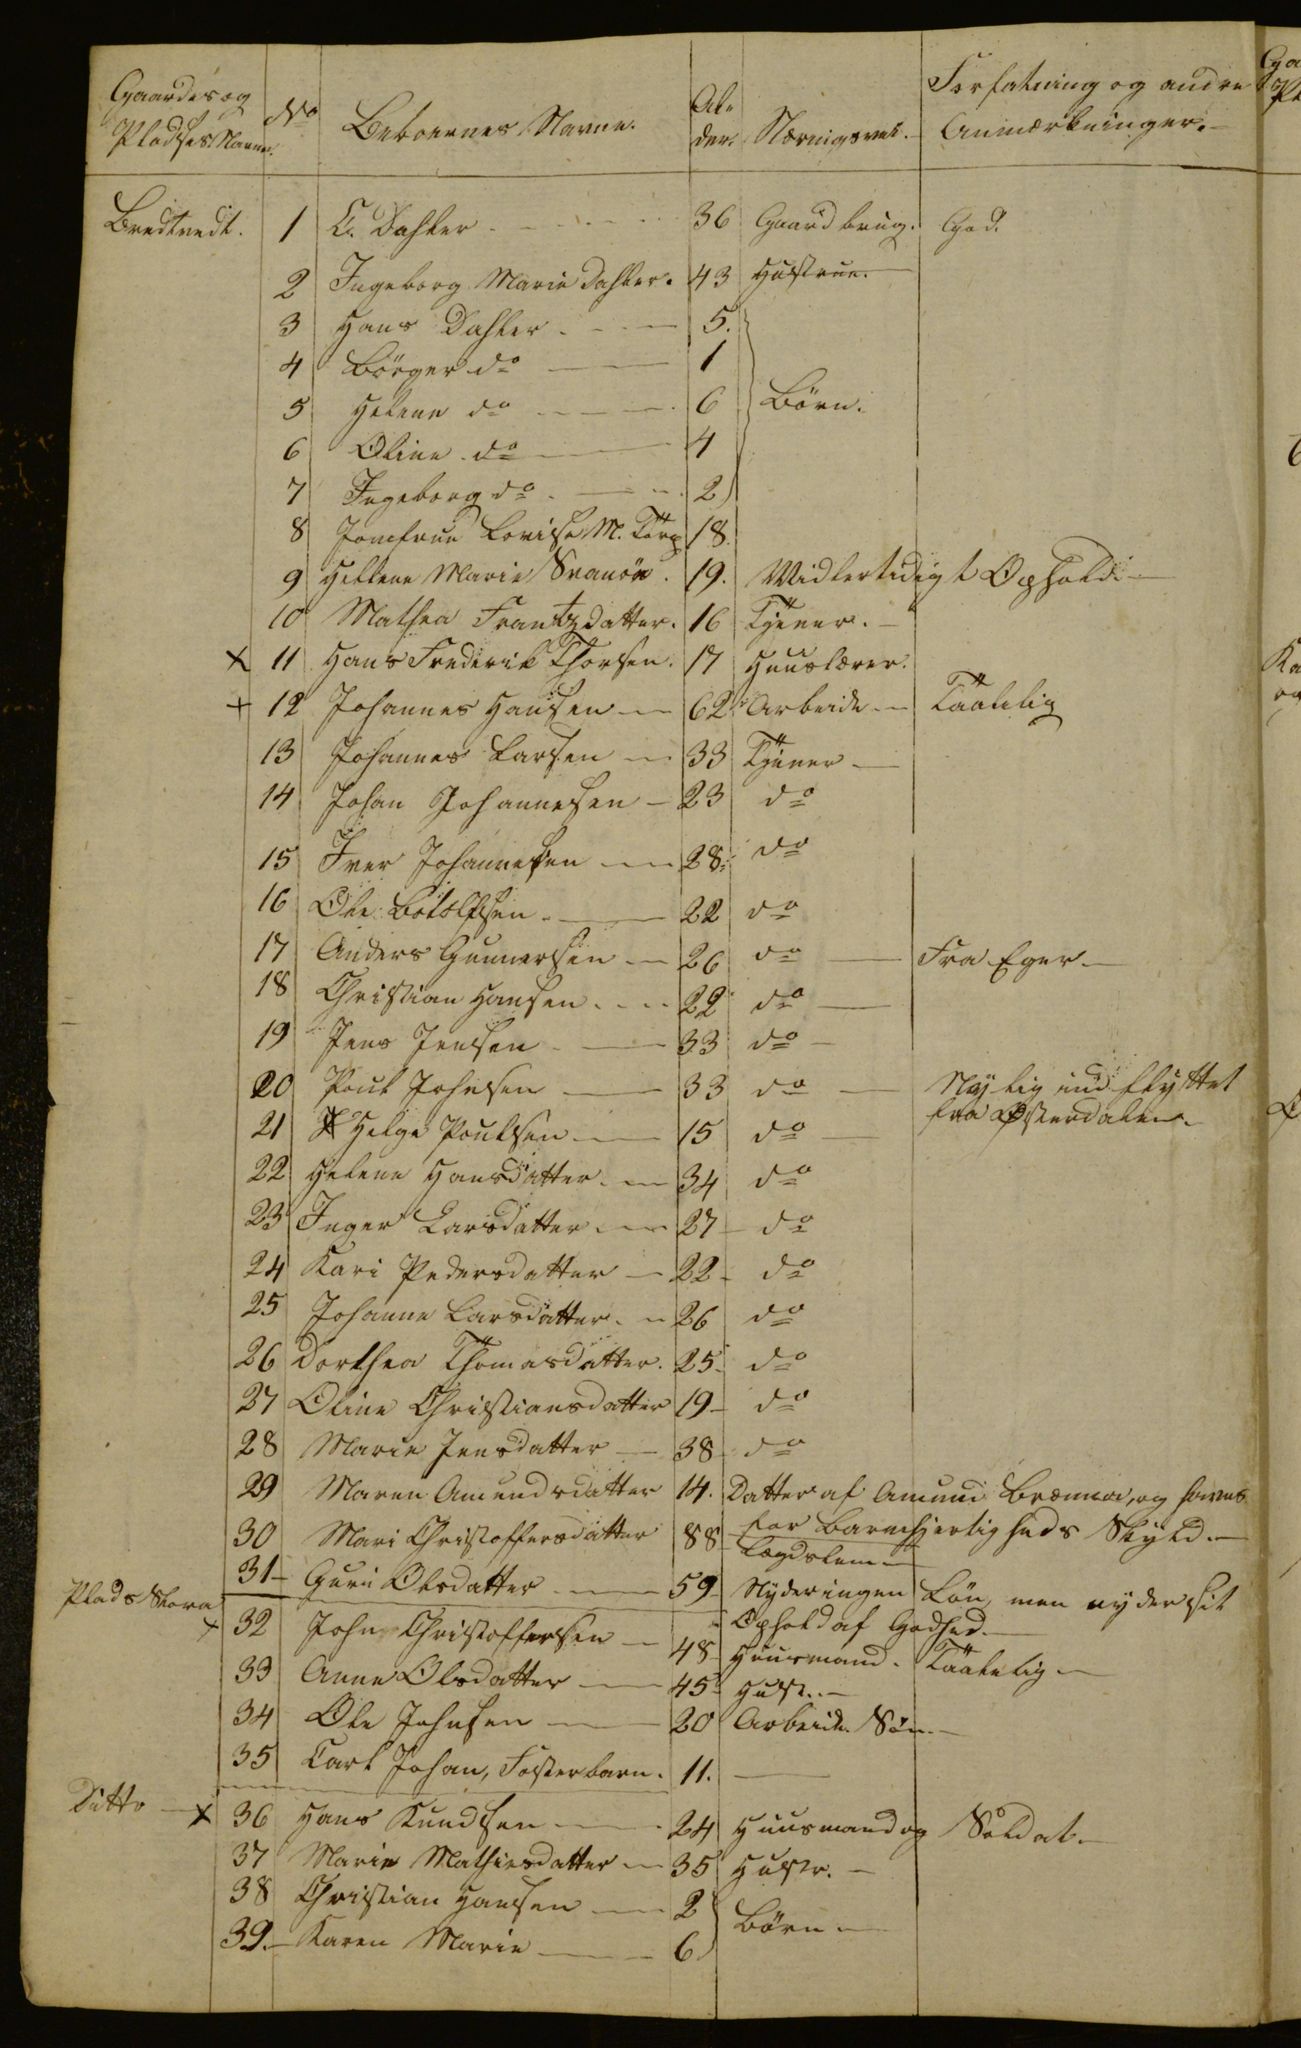 Gaardes og Pladses Navne. No Beboernes Navne. Alder. Næringsvei. Forfatning og andre Anmærkninger.
Bredtvedt. 1 C. Dahler 36 Gaardbrug. God.
2 Ingeborg Marie Dahler. 43 Hustrue.
3 Hans Dahler 5.
4 Börger do 1
5 Helene do 6 Börn.
6 Oline do 4
7 Ingeborg do 2
8 Jomfrue Lovise M. Törp 18.
9 Hellene Marie Svanöe. 19. Midlertidigt Ophold.
10 Mathea Frantzdatter. 16 Tjener.
x 11 Hans Frederik Thorsen. 17 Huuslærer.
+ 12 Johannes Hansen 62 Arbeide Taalelig
13 Johannes Larsen 33 Tjener
14 Johan Johannesen 23 do
15 Iver Johannesen 28 do
16 Ole Botolfsen 22 do
17 Anders Gunnersen 26 do Fra Eger
18 Christian Hansen 22 do
19 Jens Jensen 33 do
20 Poul Johnsen 33 do Nylig indflyttet
21 Helge Poulsen 15 do fra Østerdalen.
22 Helene Hansdatter 34 do
23 Inger Larsdatter 27 do
24 Kari Pedersdatter 22 do
25 Johanne Larsdatter 26 do
26 Dorthea Thomasdatter. 25 do
27 Oline Christiansdatter 19 do
28 Marie Jensdatter 38 do
29 Maren Amundsdatter 14. Datter af Amund Brænna, og haves
for Barmhjertigheds Skyld.
30 Mari Christoffersdatter 88 Lægdslem
31 Guri Olsdatter 59 Nyder ingen Lön, men nyder sit
Ophold af Godhed.
Plads Stora x 32 John Christoffersen 48 Huusmand. Taalelig
33 Anne Olsdatter 45 Hust.
34 Ole Johnsen 20 Arbeide. Sön
35 Carl Johan, Fosterbarn. 11.
Ditto x 36 Hans Knudsen 24 Huusmand og Soldat.
37 Marie Mathiesdatter 35 Hustr.
38 Christian Hansen 2 Börn
39. Karen Marie 6